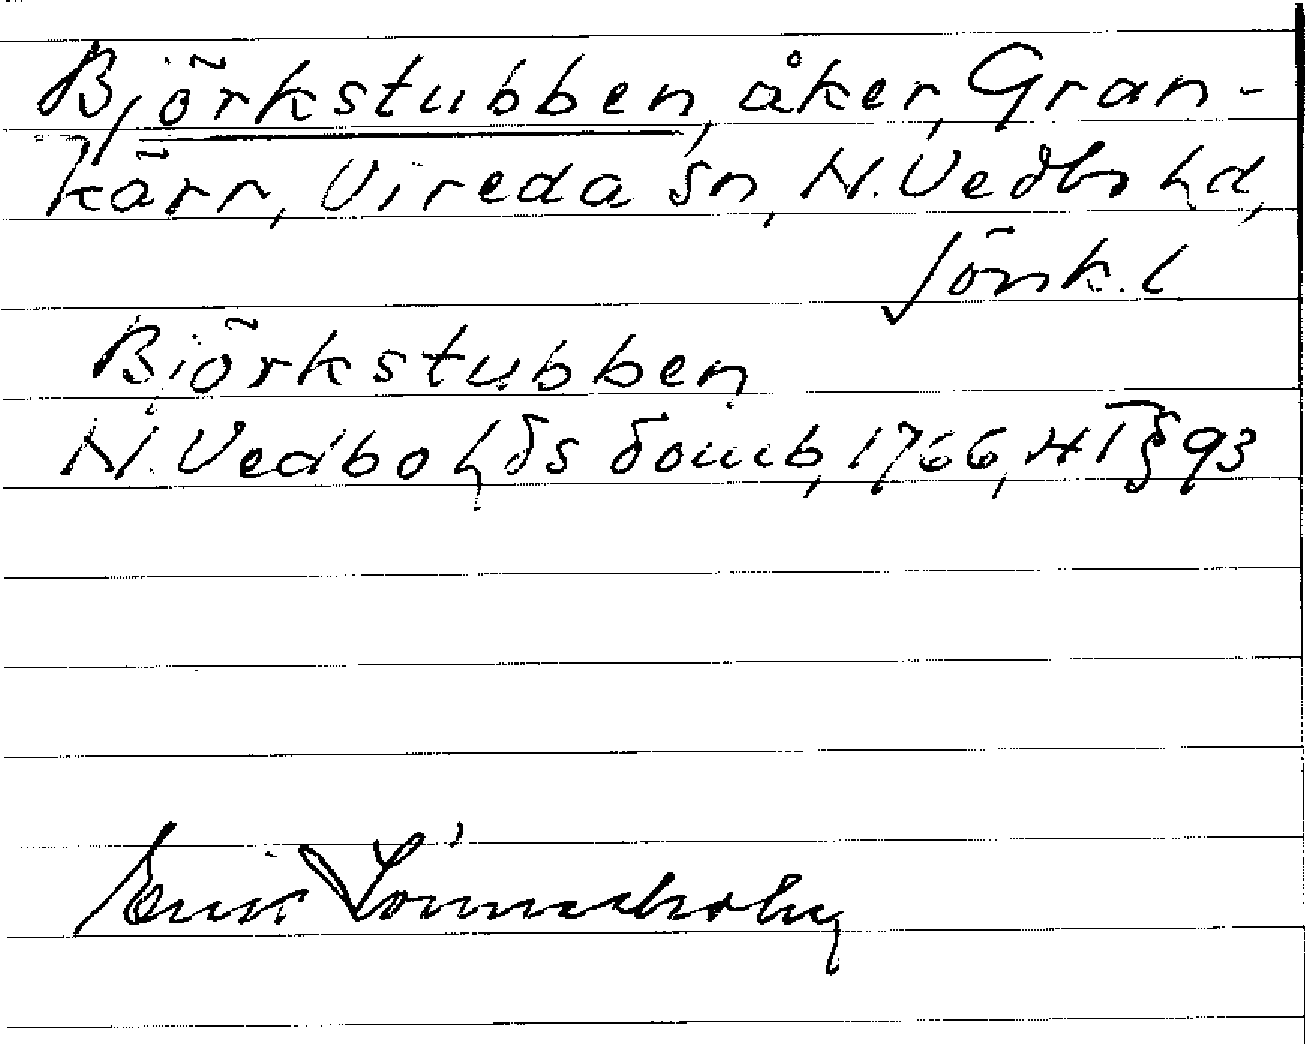 Björkstubben, åker, Gran-
kärr, Vireda sn, N. Vedbo hd,
Jönk. l
Björkstubben
N. Vedbo hds domb, 1766, HT § 93
Erik Lönnerholm